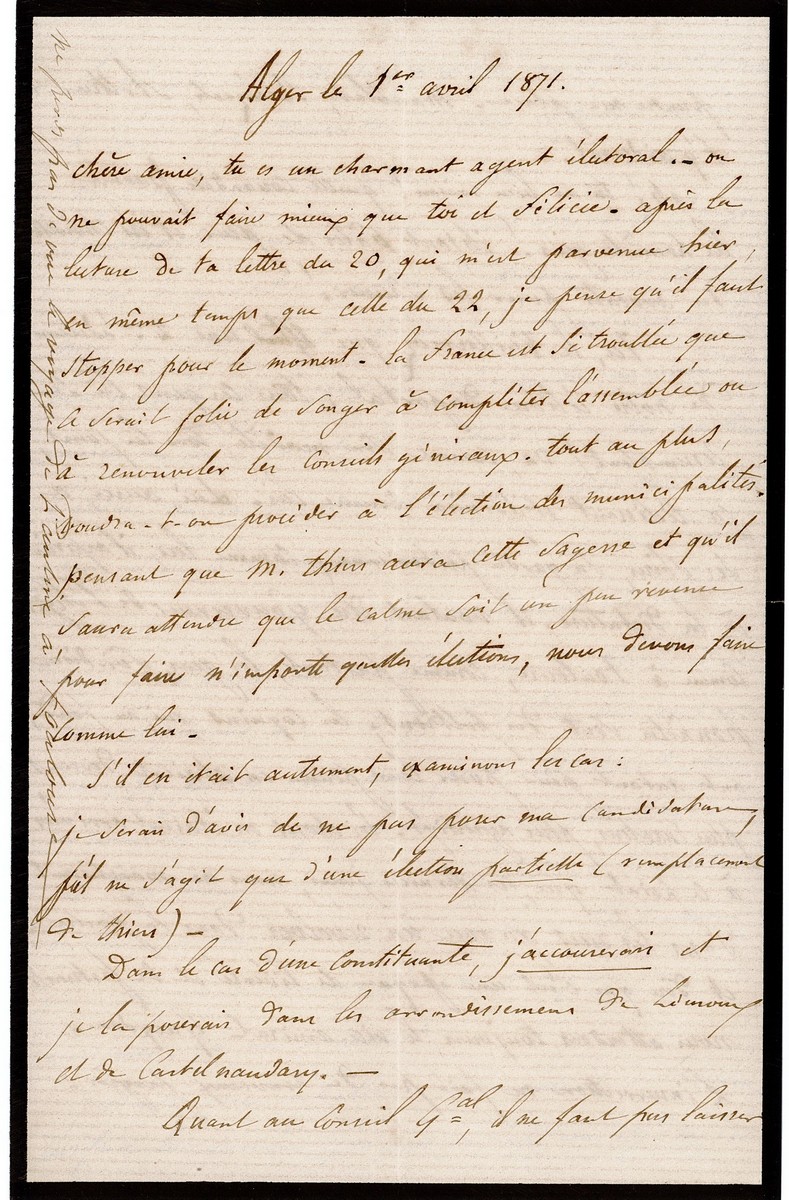 Alger le 1er avril 1871.
chère amie, tu es un charmant agent électoral. — on
ne pouvait faire mieux que toi et Félicie. après la
lecture de ta lettre du 20, qui m'est parvenue hier,
en même temps que celle du 22, je pense qu'il faut
stopper pour le moment. la France est si troublée que
ce serait folie de songer à compléter l'assemblée ou
à renouveler les conseils généraux. tout au plus,
voudra-t-on procéder à l'élection des municipalités.
pensant que M. Thiers aura cette sagesse et qu'il
saura attendre que le calme soit un peu revenu
pour faire n'importe quelles élections, nous devons faire
comme lui.
S'il en était autrement, examinons les cas :
je serais d'avis de ne pas poser ma candidature,
s'il ne s'agit que d'une élection partielle (remplacement
de Thiers) —
Dans le cas d'une constituante, j'accourerais et
je la poserais dans les arrondissements de Limoux
et de Castelnaudary. —
Quant au Conseil Gal, il ne faut pas laisser
ne perds pas de vue le voyage de Pauline à Toulouse